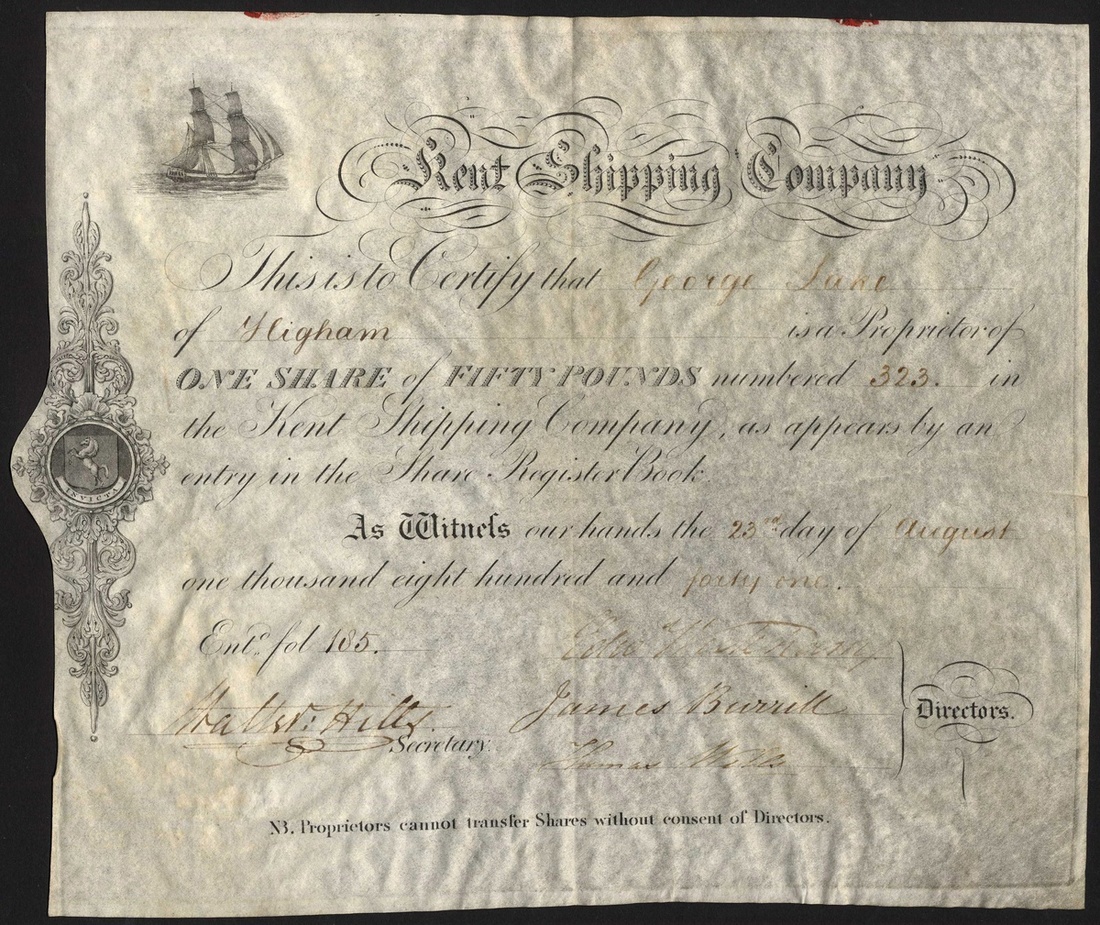 Kent Shipping Company
This is to Certify that George Lake
of Higham is a Proprietor of
ONE SHARE of FIFTY POUNDS numbered 323. in
the Kent Shipping Company, as appears by an
entry in the Share Register Book
INVICTA
As Witneſs our hands the 23rd day of August
one thousand eight hundred and forty one.
Entd. fol 185.
James Burrill
Walter Hills
Directors.
Secretary.
Thomas
NB. Proprietors cannot transfer Shares without consent of Directors.